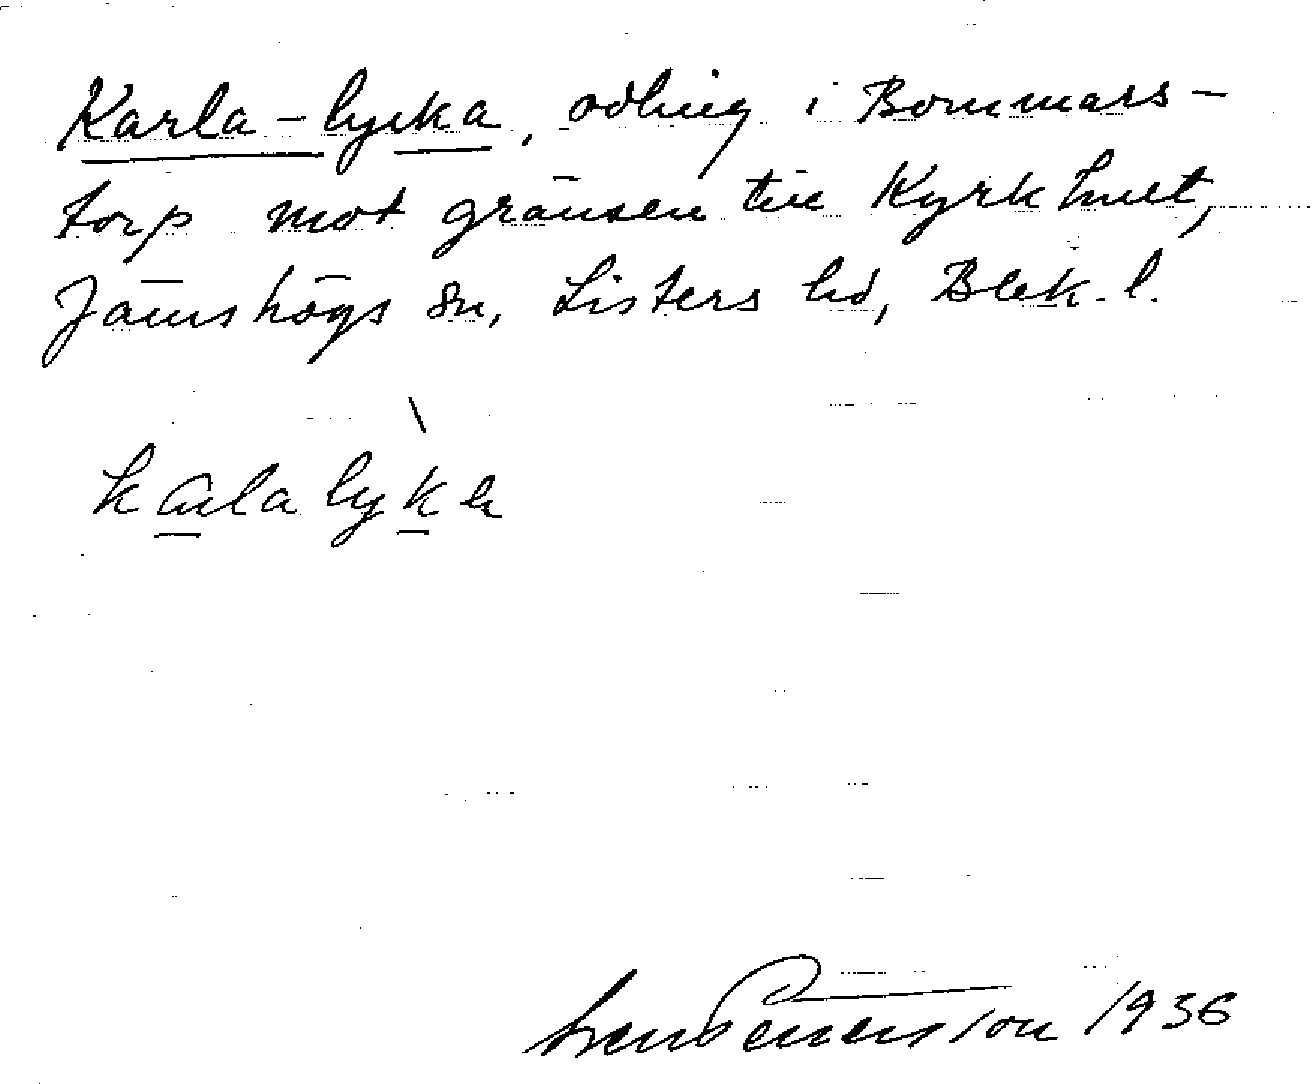 Karla-lycka, odling i Bommars-
torp mot gränsen till Kyrkhult,
Jämshögs sn, Listers hd, Blek. l.
karlalyka
Sven Petersson 1936